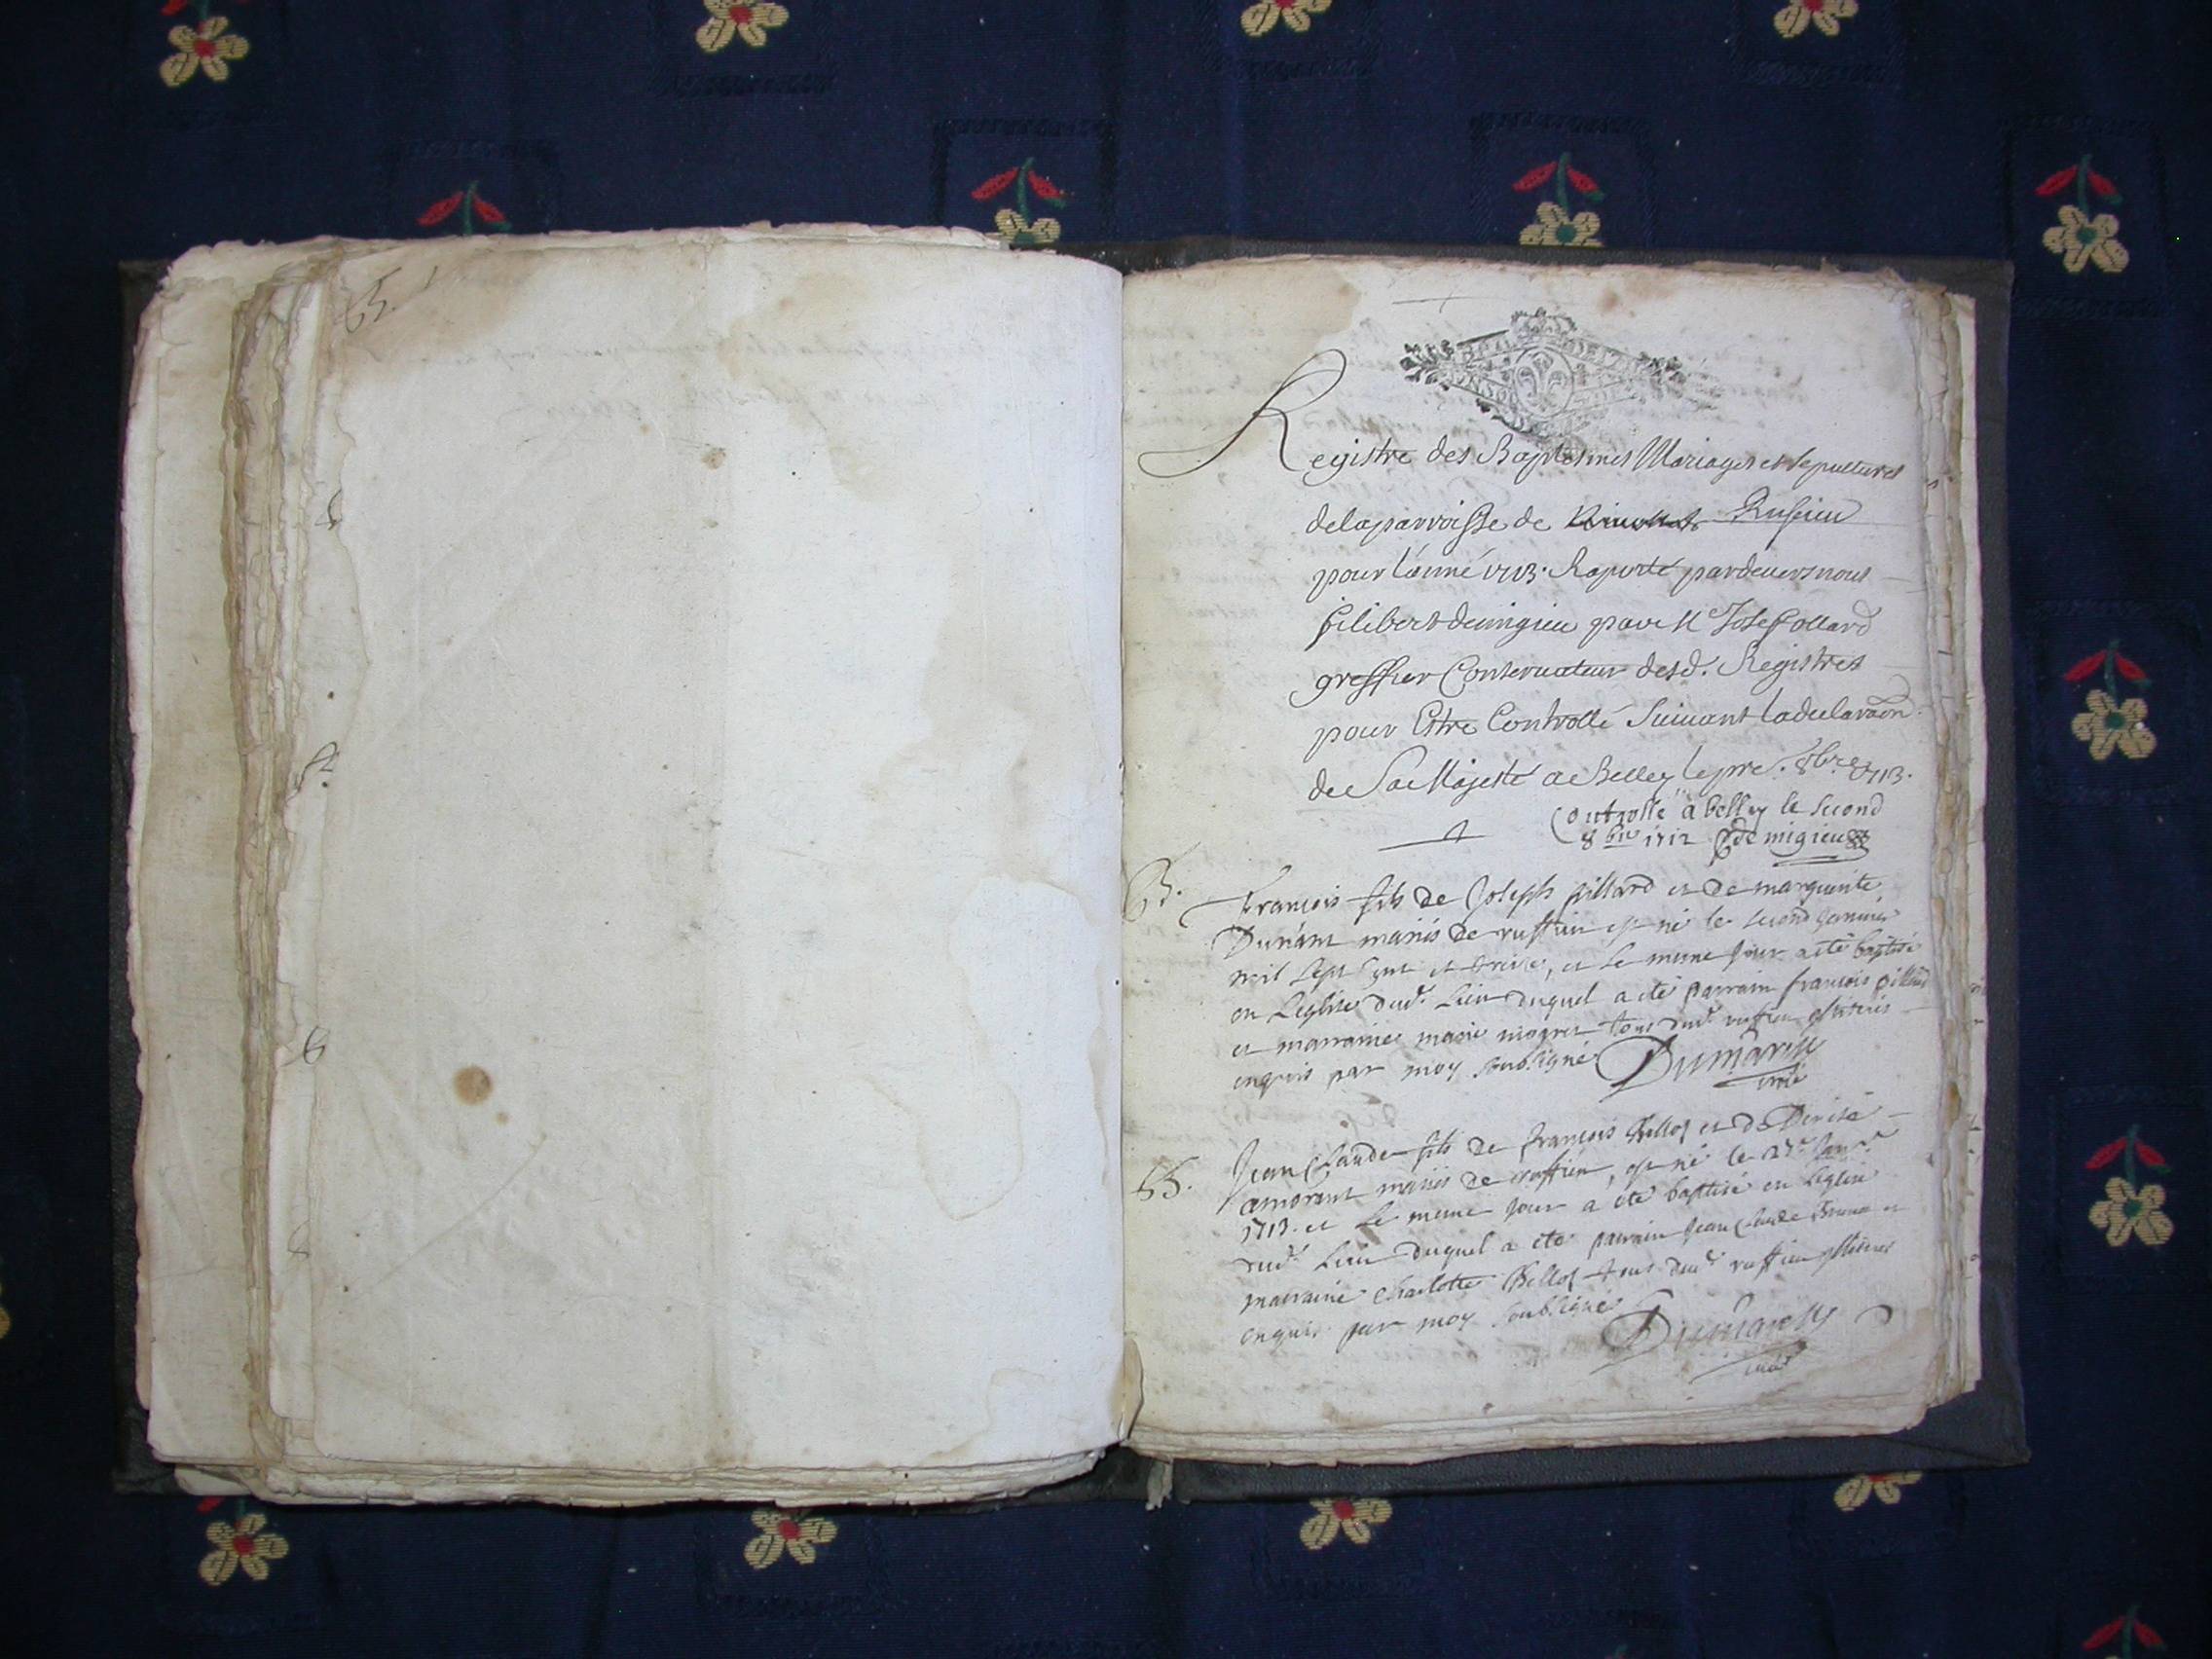 B.
Registre des Baptesmes Mariages et sepultures
de la parroisse de Rufieu
pour l'anné 1713. Raporté pardevers nous
filibert demigieu par Mr Josef ollard
greffier Conservateur desd. Registres
pour Estre Controllé Suivant la declaraon
de Sa Majesté a Belley le pre. 8bre 1713.
Controllé a belley le second
8bre 1712 demigieu
B.
francois fils de Joseph pillard et de marguerite
Durant mariés de ruffieu est né le second Janvier
mil sept cent et treize, et le mesme jour a eté baptisé
en L'eglise dud. Lieu duquel a eté parrain francois pillard
et marraine marie tous dud. ruffieu
enquis par moy soubsigné Dumarest
curé
B.
Jean Claude fils de francois Bellod et de Denise
amorant mariés de ruffieu, est né le Janvr.
1713. et le mesme jour a eté baptisé en Leglise
dud. Lieu duquel a eté parrain Jean Claude et
marraine charlotte Bellod tous dud. ruffieu
enquis par moy soubsigné
Dumarest
curé